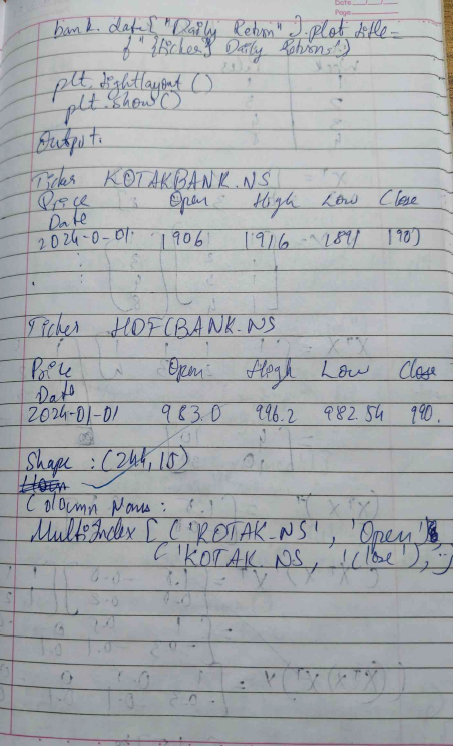 Date
Page
bank. data[ "Daily Return" ].plot title=
f"{ticker} Daily Returns")
plt. tightlayout ()
plt. show ()
Output.
Ticker KOTAKBANK.NS
Price Open High Low Close
Date
2024-0-01. 1906 1916 1891
Ticker HDFCBANK.NS
Price Open High Low Close
Date
2024-01-01 983.0 996.2 982.54 990.
Shape : (244, 15)
Column Names :
MultiIndex [ ('KOTAK.NS', 'Open'
('KOTAK.NS, 'Close'),